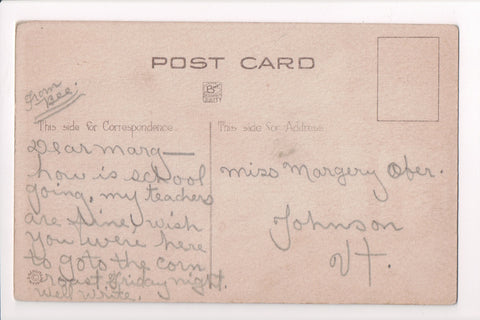 POST CARD
From
Bee.
This side for Correspondence.
This side for Address.
Dear Marg—
how is school
going, my teachers
are fine, wish
you were here
to goto the corn
roast Friday night.
Well write.
Miss Margery Ober.
Johnson
Vt.